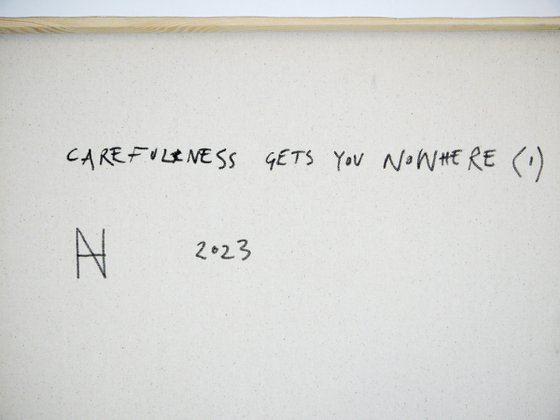 CAREFULNESS GETS YOU NOWHERE (1)
N 2023